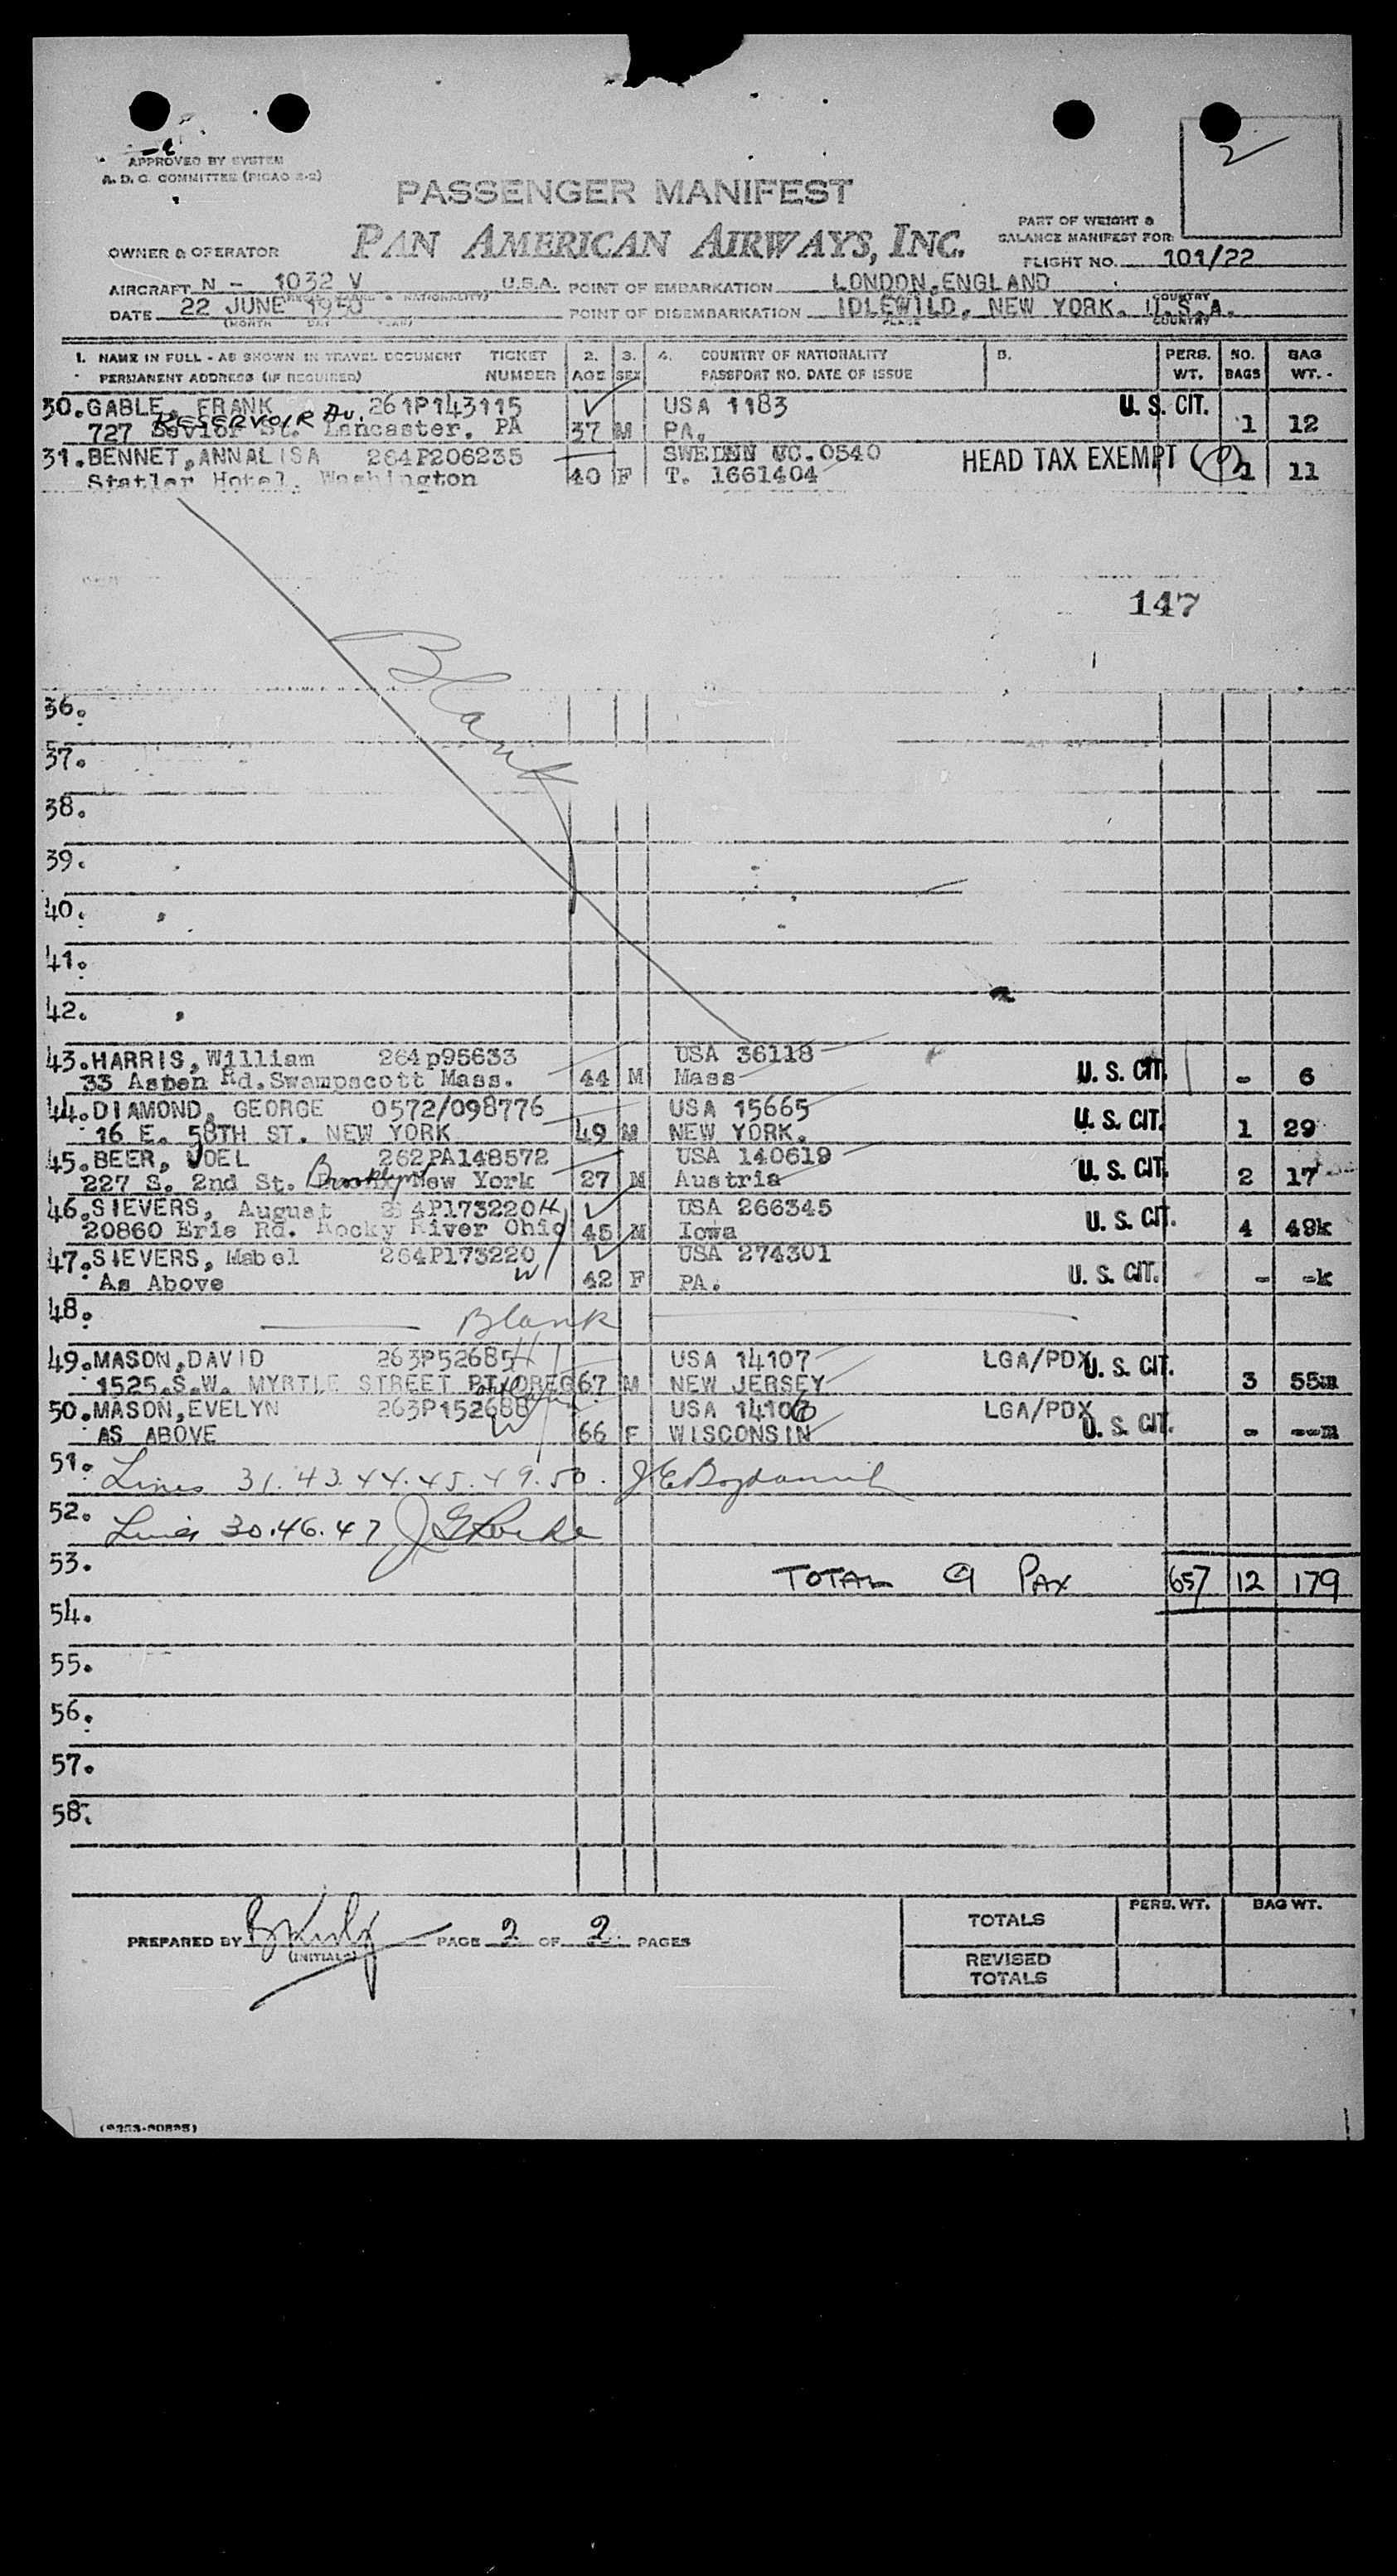 2
APPROVED BY SYSTEM
A. D. C. COMMITTEE (PICAO 2-2)
PASSENGER MANIFEST
PAN AMERICAN AIRWAYS, INC.
PART OF WEIGHT &
BALANCE MANIFEST FOR
OWNER & OPERATOR
FLIGHT NO. 101/22
AIRCRAFT N - 1032 V U.S.A. POINT OF EMBARKATION LONDON, ENGLAND
COUNTRY
DATE 22 JUNE 1950 POINT OF DISEMBARKATION IDLEWILD, NEW YORK. U.S.A.
(MONTH DAY YEAR) PLACE COUNTRY
1. NAME IN FULL - AS SHOWN IN TRAVEL DOCUMENT TICKET 2. 3. 4. COUNTRY OF NATIONALITY 5. PERS. NO. BAG
PERMANENT ADDRESS (IF REQUIRED) NUMBER AGE SEX PASSPORT NO. DATE OF ISSUE WT. BAGS WT.
30. GABLE, FRANK 261P143115 USA 1183 U.S. CIT.
RESERVOIR Av.
727 St. Lancaster. PA 37 M PA. 1 12
31. BENNET, ANNALISA 264P206235 UC.0540 HEAD TAX EXEMPT
Statler Hotel. Washington 40 F T. 1661404 1 11
147
Blank
36.
37.
38.
39.
40.
41.
42.
43. HARRIS, William 264p95633 USA 36118
33 Aspen Rd. Swampscott Mass. 44 M Mass U. S. CIT. - 6
44. DIAMOND, GEORGE 0572/098776 USA 15665
16 E. 58TH ST. NEW YORK 49 M NEW YORK. U. S. CIT. 1 29
45. BEER, JOEL 262PA148572 USA 140619
227 S. 2nd St. Brooklyn New York 27 M Austria U. S. CIT. 2 17
46. SIEVERS, August 264P173220 H USA 266345
20860 Erie Rd. Rocky River Ohio 45 M Iowa U. S. CIT. 4 49k
47. SIEVERS, Mabel 264P173220 USA 274301
W
As Above 42 F PA. U. S. CIT. - -k
48. Blank
49. MASON, DAVID 263P52685 H USA 14107 LGA/PDX U. S. CIT.
1525.S.W. MYRTLE STREET OREG 67 M NEW JERSEY 3 55m
50. MASON, EVELYN 263P152688 USA 14106 LGA/PDX
W
AS ABOVE 66 F WISCONSIN U. S. CIT. - --m
51. Lines 31. 43. 44. 45. 49. 50.
52. Lines 30. 46. 47
53. TOTAL 9 PAX 657 12 179
54.
55.
56.
57.
58.
PERS. WT. BAG WT.
TOTALS
PREPARED BY PAGE 2 OF 2 PAGES
(INITIALS)
REVISED
TOTALS